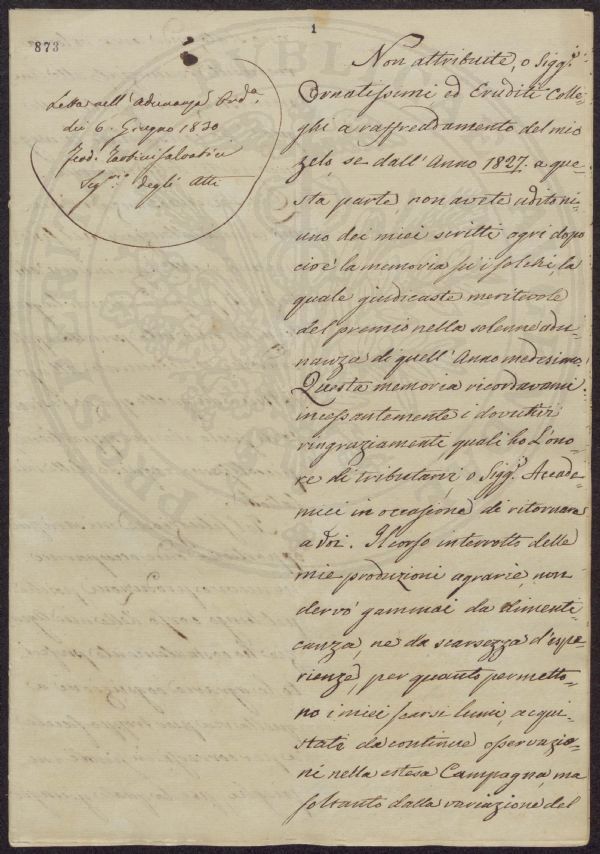 1
873
Letta nell'adunanza Ord.a
dei 6. Giugno 1830
Seg.rio degli Atti
Non attribuite, o Sigg.i
Ornatissimi ed Eruditi Colle-
ghi a raffreddamento del mio
zelo, se dall'Anno 1827. a que-
sta parte, non avete udito ni-
uno dei miei scritti agrj dopo
cioè la memoria su i solchi, la
quale giudicaste meritevole
del premio nella solenne adu-
nanza di quell'Anno medesimo.
Questa memoria ricordavami
incessantemente i dovuti
ringraziamenti, quali ho l'ono-
re di tributarvi o Sigg.i Accade-
mici in occasione di ritornare
a Voi. Il corso interrotto delle
mie produzioni agrarie, non
dervò gammai da dimenti-
canza, ne da scarsezza d'espe-
rienze, per quanto permetto-
no i miei scarsi lumi, acqui-
stati da continue osservazio-
ni nella estesa Campagna, ma
soltanto dalla variazione del